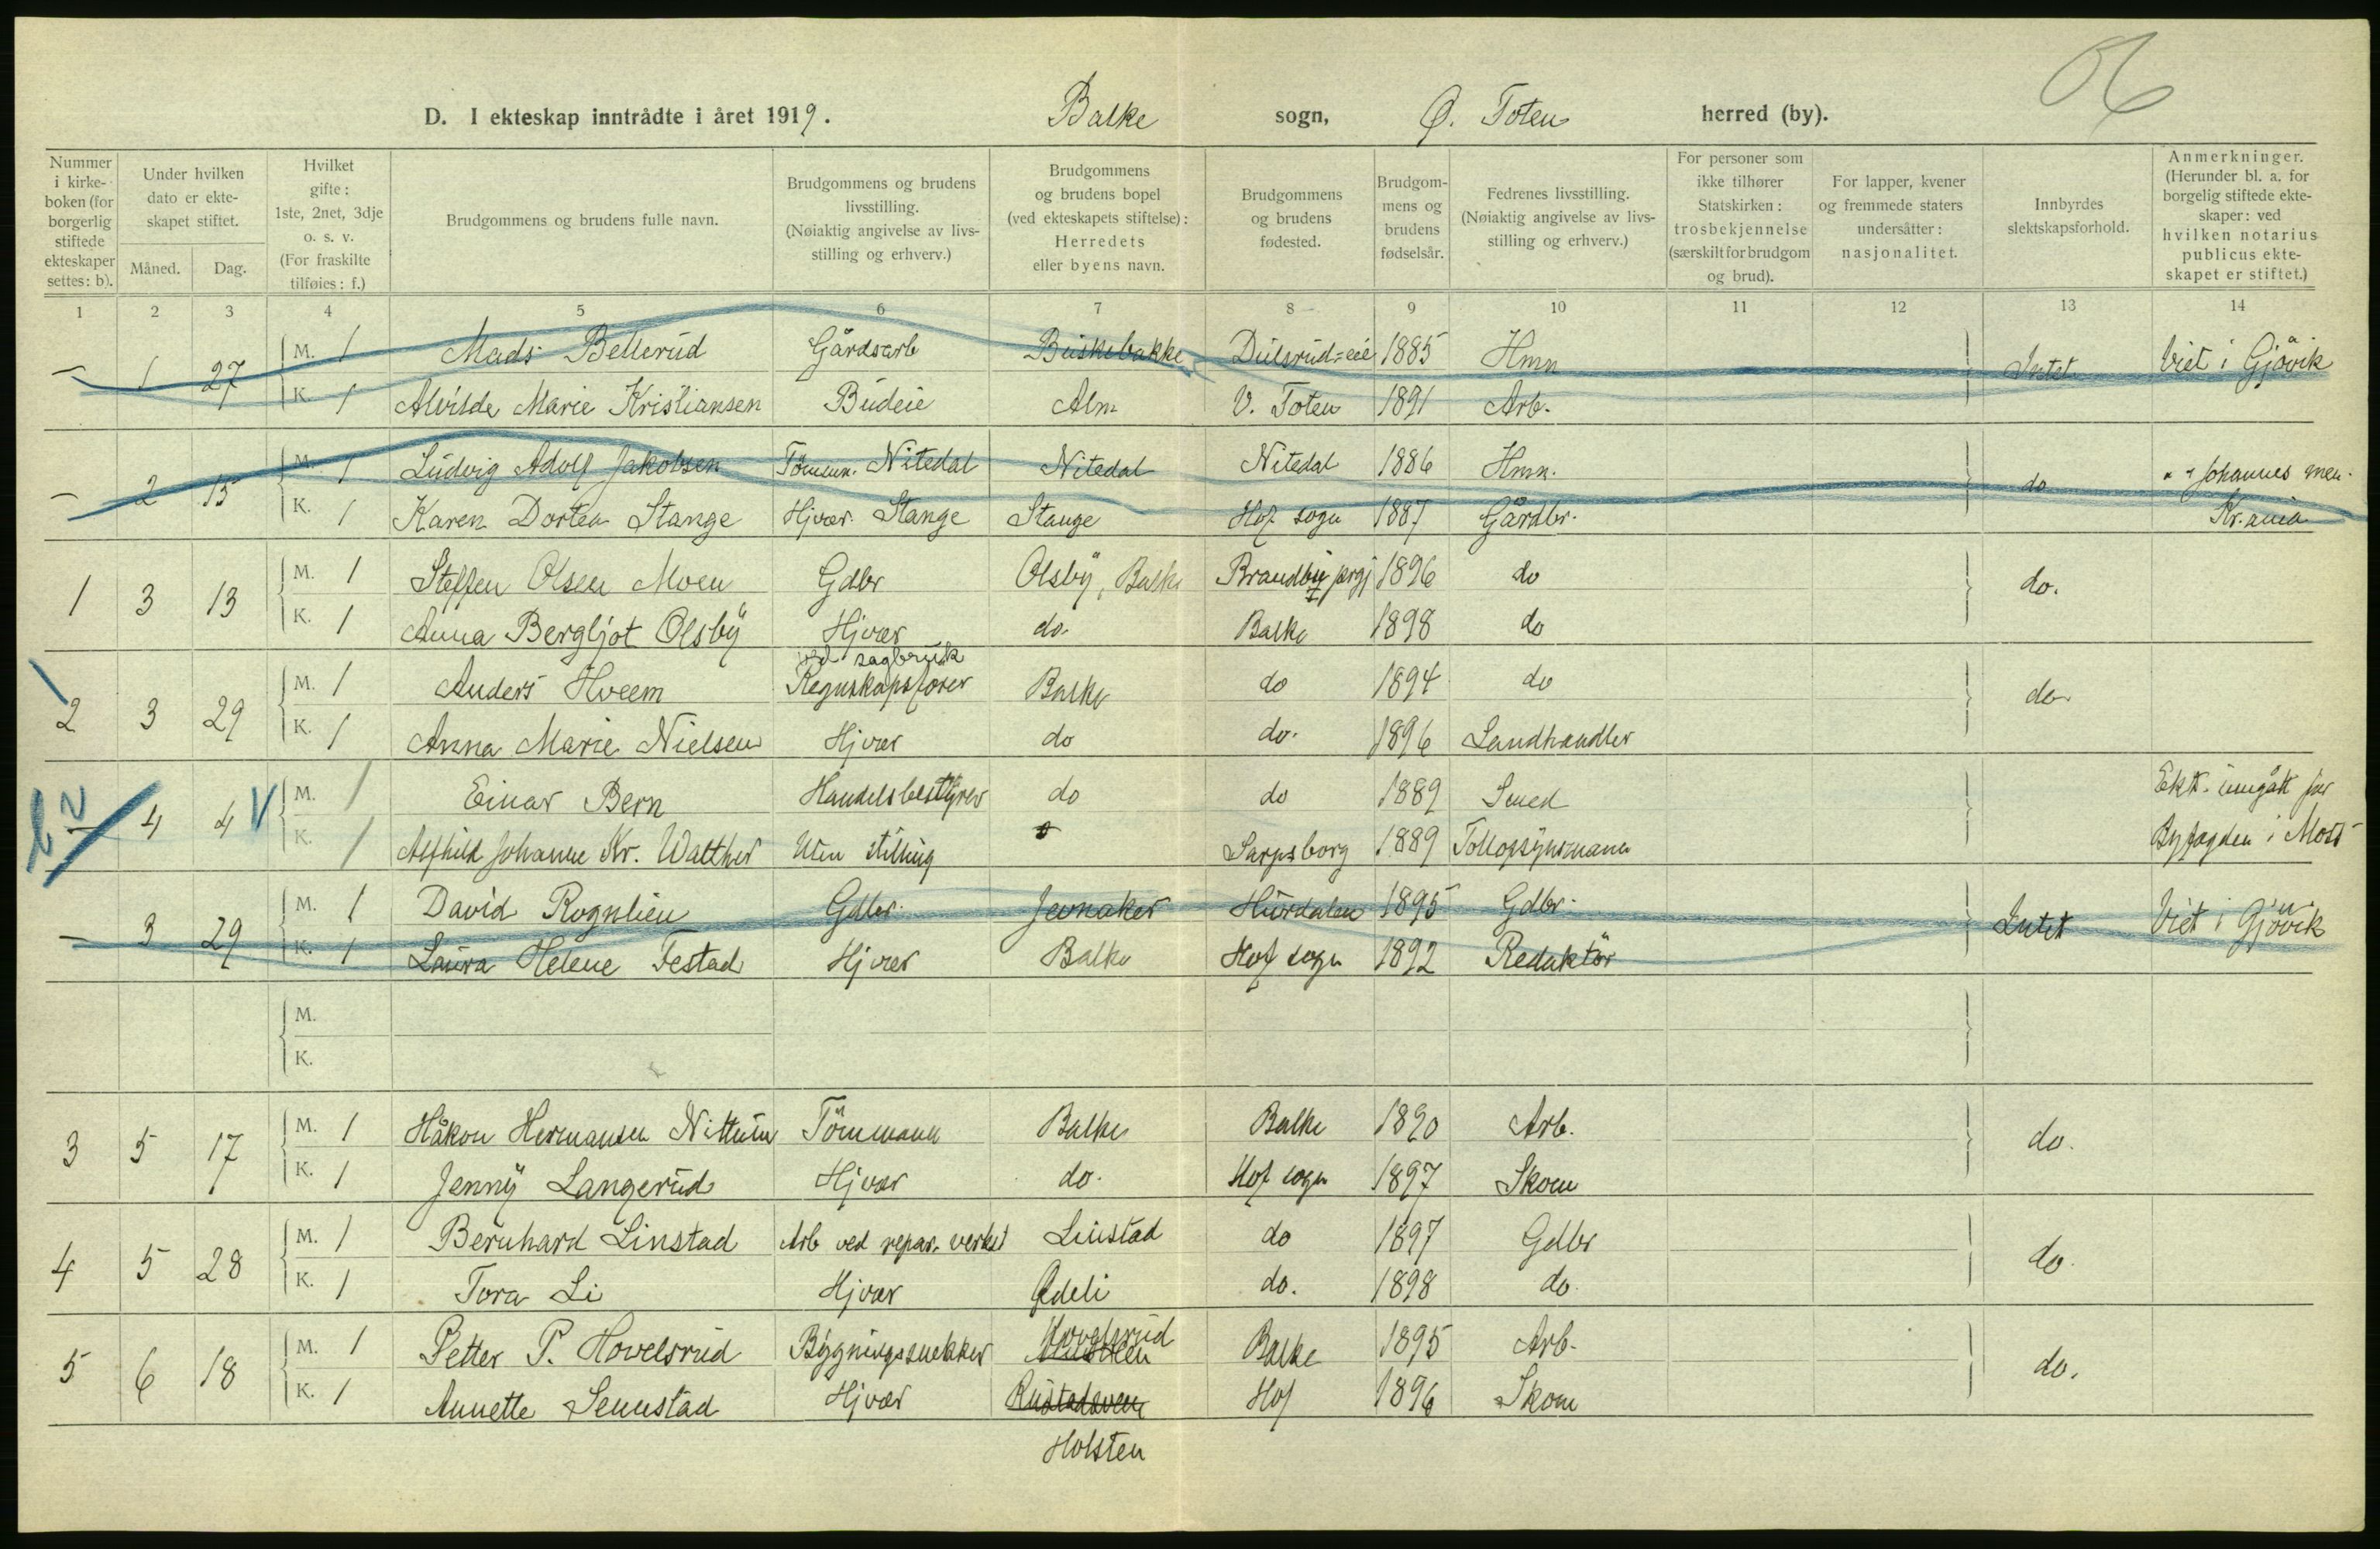 D. I ekteskap inntrådte i året 1919. Balke sogn, Ø. Toten herred (by).
Nummer i kirkeboken (for borgerlig stiftede ekteskaper settes: b).
Under hvilken dato er ekteskapet stiftet.
Måned. Dag.
Hvilket gifte: 1ste, 2net, 3dje o. s. v. (For fraskilte tilføies: f.)
Brudgommens og brudens fulle navn.
Brudgommens og brudens livsstilling. (Nøiaktig angivelse av livsstilling og erhverv.)
Brudgommens og brudens bopel (ved ekteskapets stiftelse): Herredets eller byens navn.
Brudgommens og brudens fødested.
Brudgommens og brudens fødselsår.
Fedrenes livsstilling. (Nøiaktig angivelse av livsstilling og erhverv.)
For personer som ikke tilhører Statskirken: trosbekjennelse (særskilt for brudgom og brud).
For lapper, kvener og fremmede staters undersåtter: nasjonalitet.
Innbyrdes slektskapsforhold.
Anmerkninger. (Herunder bl. a. for borgelig stiftede ekteskaper: ved hvilken notarius publicus ekteskapet er stiftet.)
1 2 3 4 5 6 7 8 9 10 11 12 13 14
— 1 27 M. 1 Mads Bellerud Gårdsarb Buskebakke Dulsrud=eie 1885 Hmn Intet Viet i Gjøvik
K. 1 Alvilde Marie Kristiansen Budeie Alm V. Toten 1891 Arb.
— 2 15 M. 1 Ludvig Adolf Jakobsen Tömm. Nitedal Nitedal Nitedal 1886 Hmn. do " " Johannes men.
K. 1 Karen Dortea Stange Hjvær. Stange Stange Hof sogn 1887 Gårdbr. Kr.ania
1 3 13 M. 1 Steffen Olsen Moen Gdbr Olsby, Balke Brandbu prgj 1896 do do.
K. 1 Anna Bergljot Olsby Hjvær do. Balke 1898 do
ved sagbruk
2 3 29 M. 1 Anders Hveem Regnskapsfører Balke do 1894 do do
K. 1 Anna Marie Nielsen Hjvær do do. 1896 Landhandler
b 2 — 4 4 V M. 1 Einar Bern Handelsbestyrer do do 1889 Smed Ekt. inngått for
K. 1 Alfhild Johanne Kr. Walther Uten stilling Sarpsborg 1889 Tollopsynsmann Byfogden i Moss
— 3 29 M. 1 David Rognlien Gdbr. Jevnaker Hurdalen 1895 Gdbr. Intet Viet i Gjøvik
K. 1 Laura Helene Festad Hjvær Balke Hof sogn 1892 Redaktör
M.
K.
3 5 17 M. 1 Håkon Hermansen Nittum Tömmann Balke Balke 1890 Arb. do.
K. 1 Jenny Langerud Hjvær do. Hof sogn 1897 Skom
4 5 28 M. 1 Bernhard Linstad Arb ved repar. verkst Linstad do 1897 Gdbr do.
K. 1 Tora Li Hjvær Ødeli do. 1898 do
Hovelsrud
5 6 18 M. 1 Petter P. Hovelsrud Bygningssnekker Balke 1895 Arb. do.
K. 1 Annette Sennstad Hjvær Rustadsveen Hof 1896 Skom
Holsten